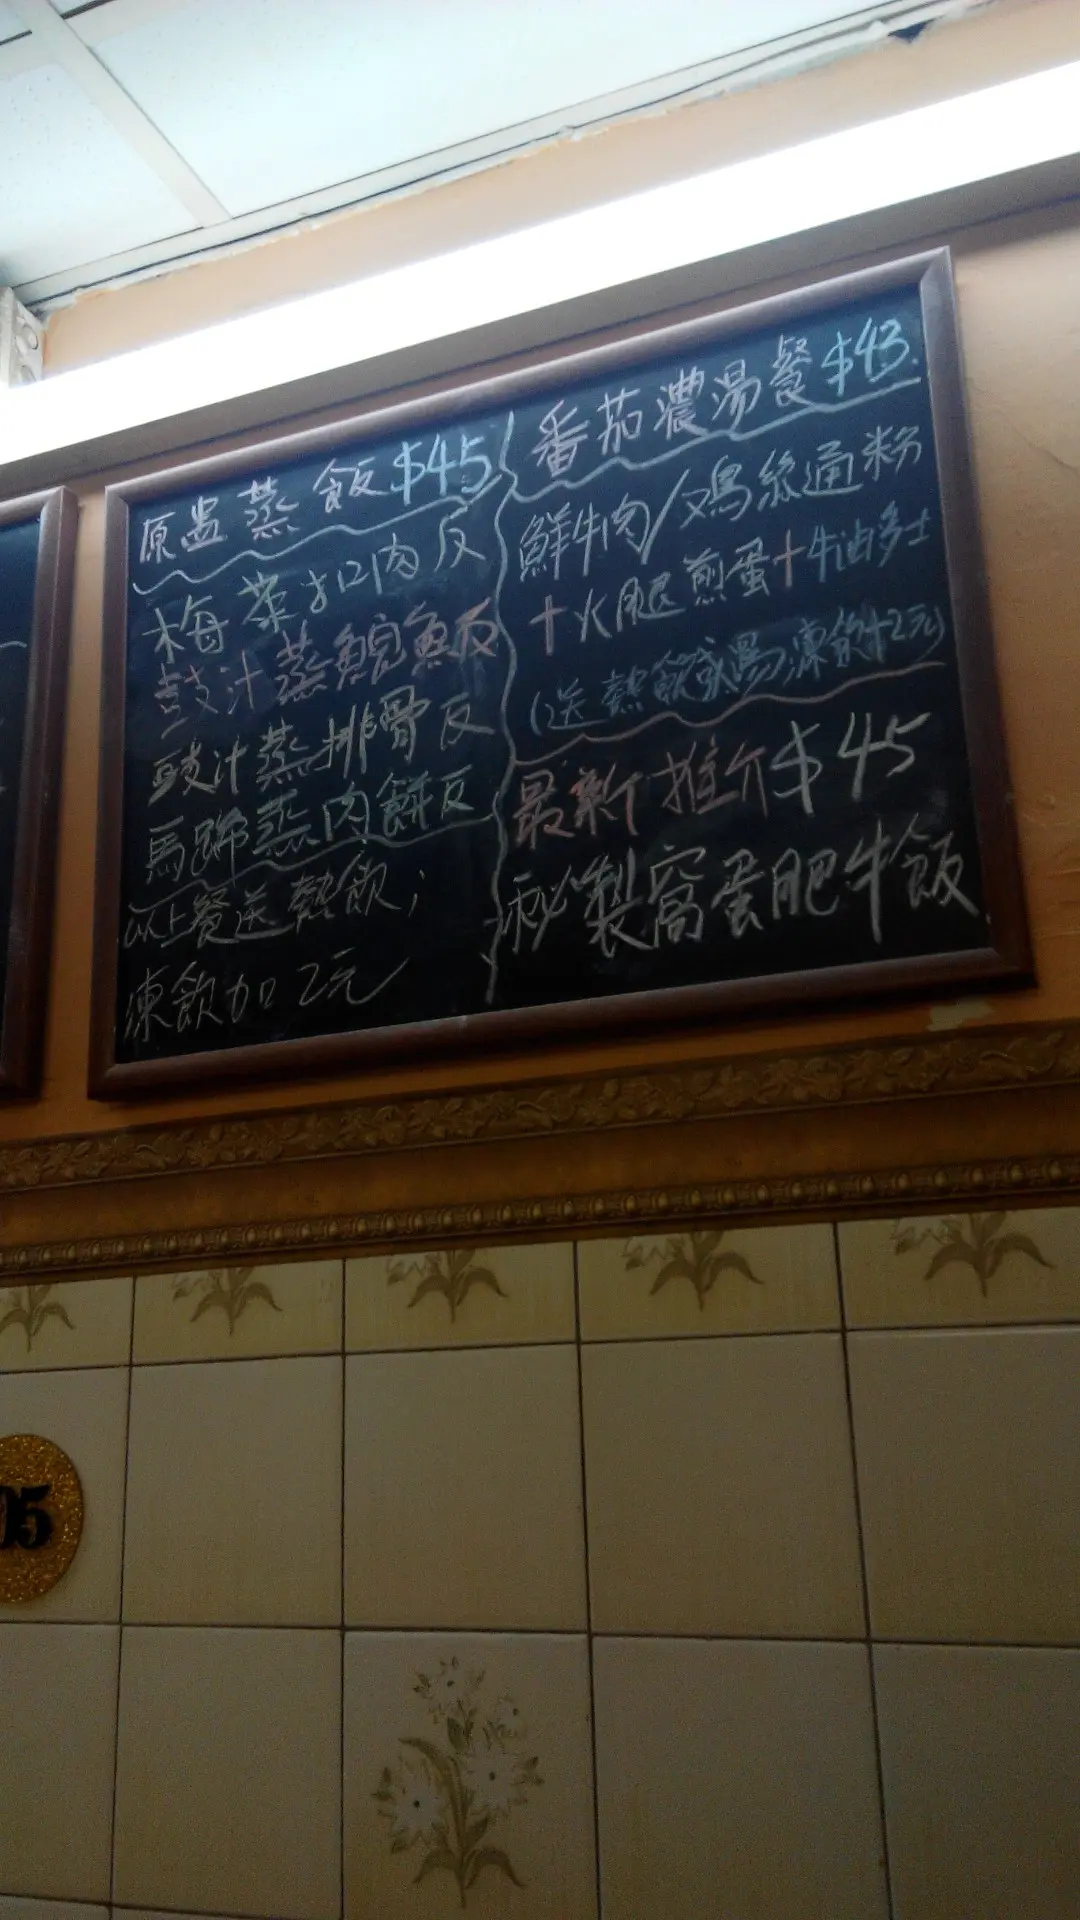 原盅蒸飯$45
梅菜扣肉反
豉汁蒸鯇魚反
豉汁蒸排骨反
馬蹄蒸肉餅反
以上餐送熱飲;
凍飲加2元
番茄濃湯餐$43.
鮮牛肉/鸡絲通粉
+火腿煎蛋+牛油多士
(送熱飲或湯凍飲+2元)
最新推介$45
秘製窩蛋肥牛飯
05